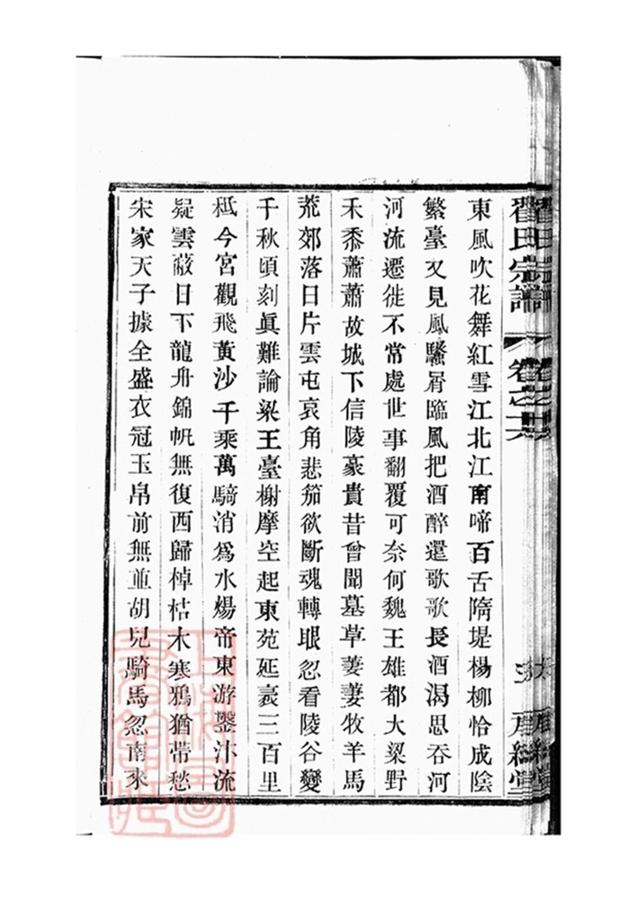 東風吹花舞紅雪江北江南啼百舌隋堤楊柳恰成陰
繁臺又見鳳驂屑臨風把酒醉還歌歌長酒渴思吞河
河流遷徙不常處世事翻覆可奈何魏王雄都大梁野
禾黍蕭蕭故城下信陵豪貴昔曾聞墓草萋萋牧羊馬
荒郊落日片雲屯哀角悲笳欲斷魂轉眼忽看陵谷變
千秋頃刻眞難論梁王臺榭摩空起東苑延袤三百里
秪今宮觀飛黃沙千乘萬騎消爲水煬帝東游鑿汴流
疑雲蔽日下龍舟錦帆無復西歸棹枯木寒鴉猶帶愁
宋家天子據全盛衣冠玉帛前無並胡兒騎馬忽南來
翟氏宗譜
卷之十六